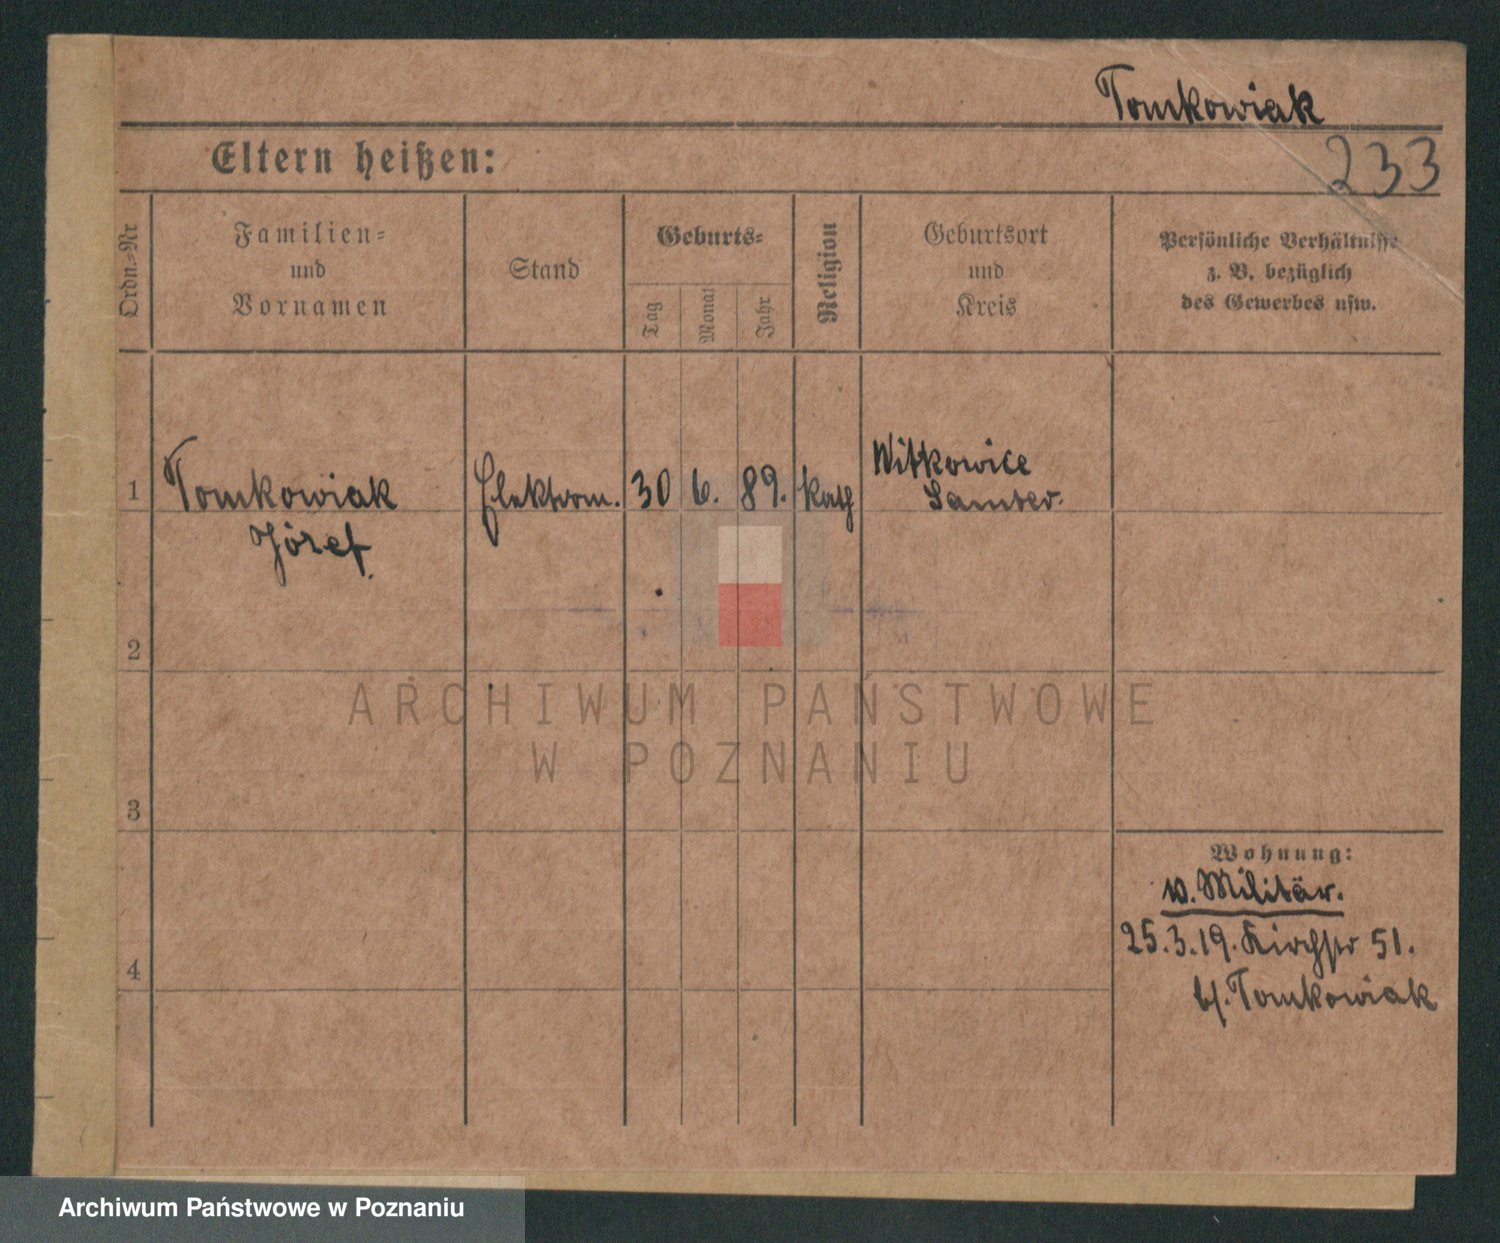 Tomkowiak
Eltern heißen:
233
Ordn.-Nr
Familien=
und
Vornamen
Stand
Geburts=
Tag
Monat
Jahr
Religion
Geburtsort
und
Kreis
Persönliche Verhältnisse
z. B. bezüglich
des Gewerbes usw.
1 Tomkowiak Elektrom. 30 6. 89. kath Witkowice
Józef
Samter.
2
3
4
Wohnung:
v. Militär.
25.3.19. Kirchstr 51.
b/. Tomkowiak
ARCHIWUM PAŃSTWOWE
W POZNANIU
Archiwum Państwowe w Poznaniu